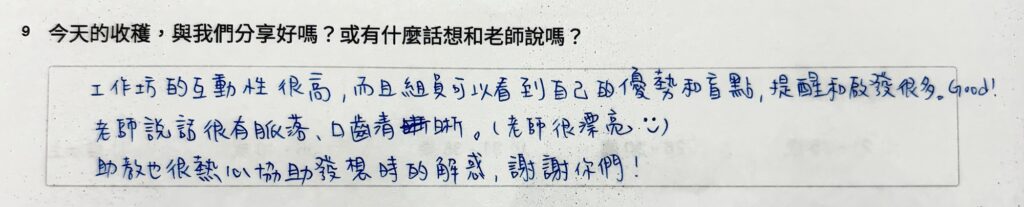 9 今天的收穫，與我們分享好嗎？或有什麼話想和老師說嗎？
工作坊的互動性很高，而且組員可以看到自己的優勢和盲點，提醒和啟發很多。Good!
老師說話很有脈落、口齒清晰。(老師很漂亮 :))
助教也很熱心協助發想時的解惑，謝謝你們！